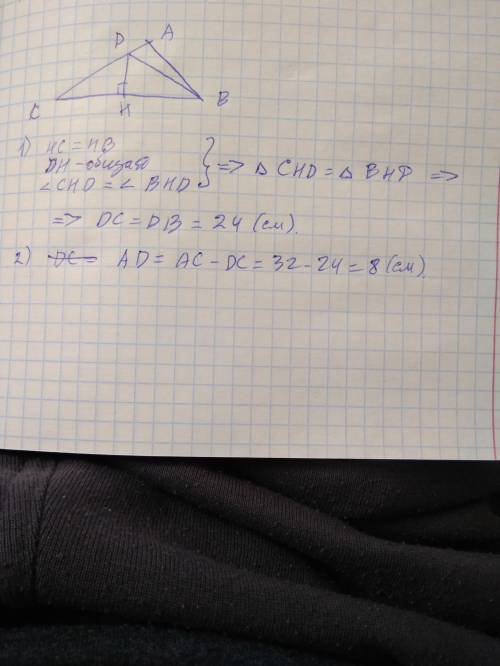 D A
C H B
1) HC = HB
DH - общая
∠CHD = ∠BHD } => △ CHD = △ BHD =>
=> DC = DB = 24 (см).
2) AD = AC - DC = 32 - 24 = 8 (см).